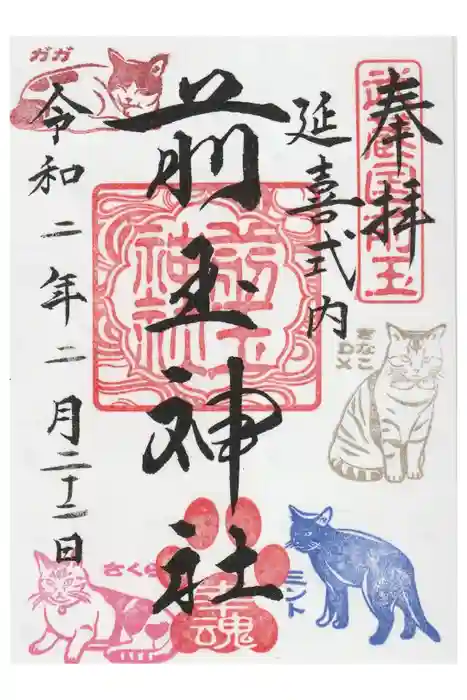 奉拝
延喜式内
前玉神社
令和二年二月二十二日
前玉神社
ガガ
きなこDX
ミント
さくら
幸魂